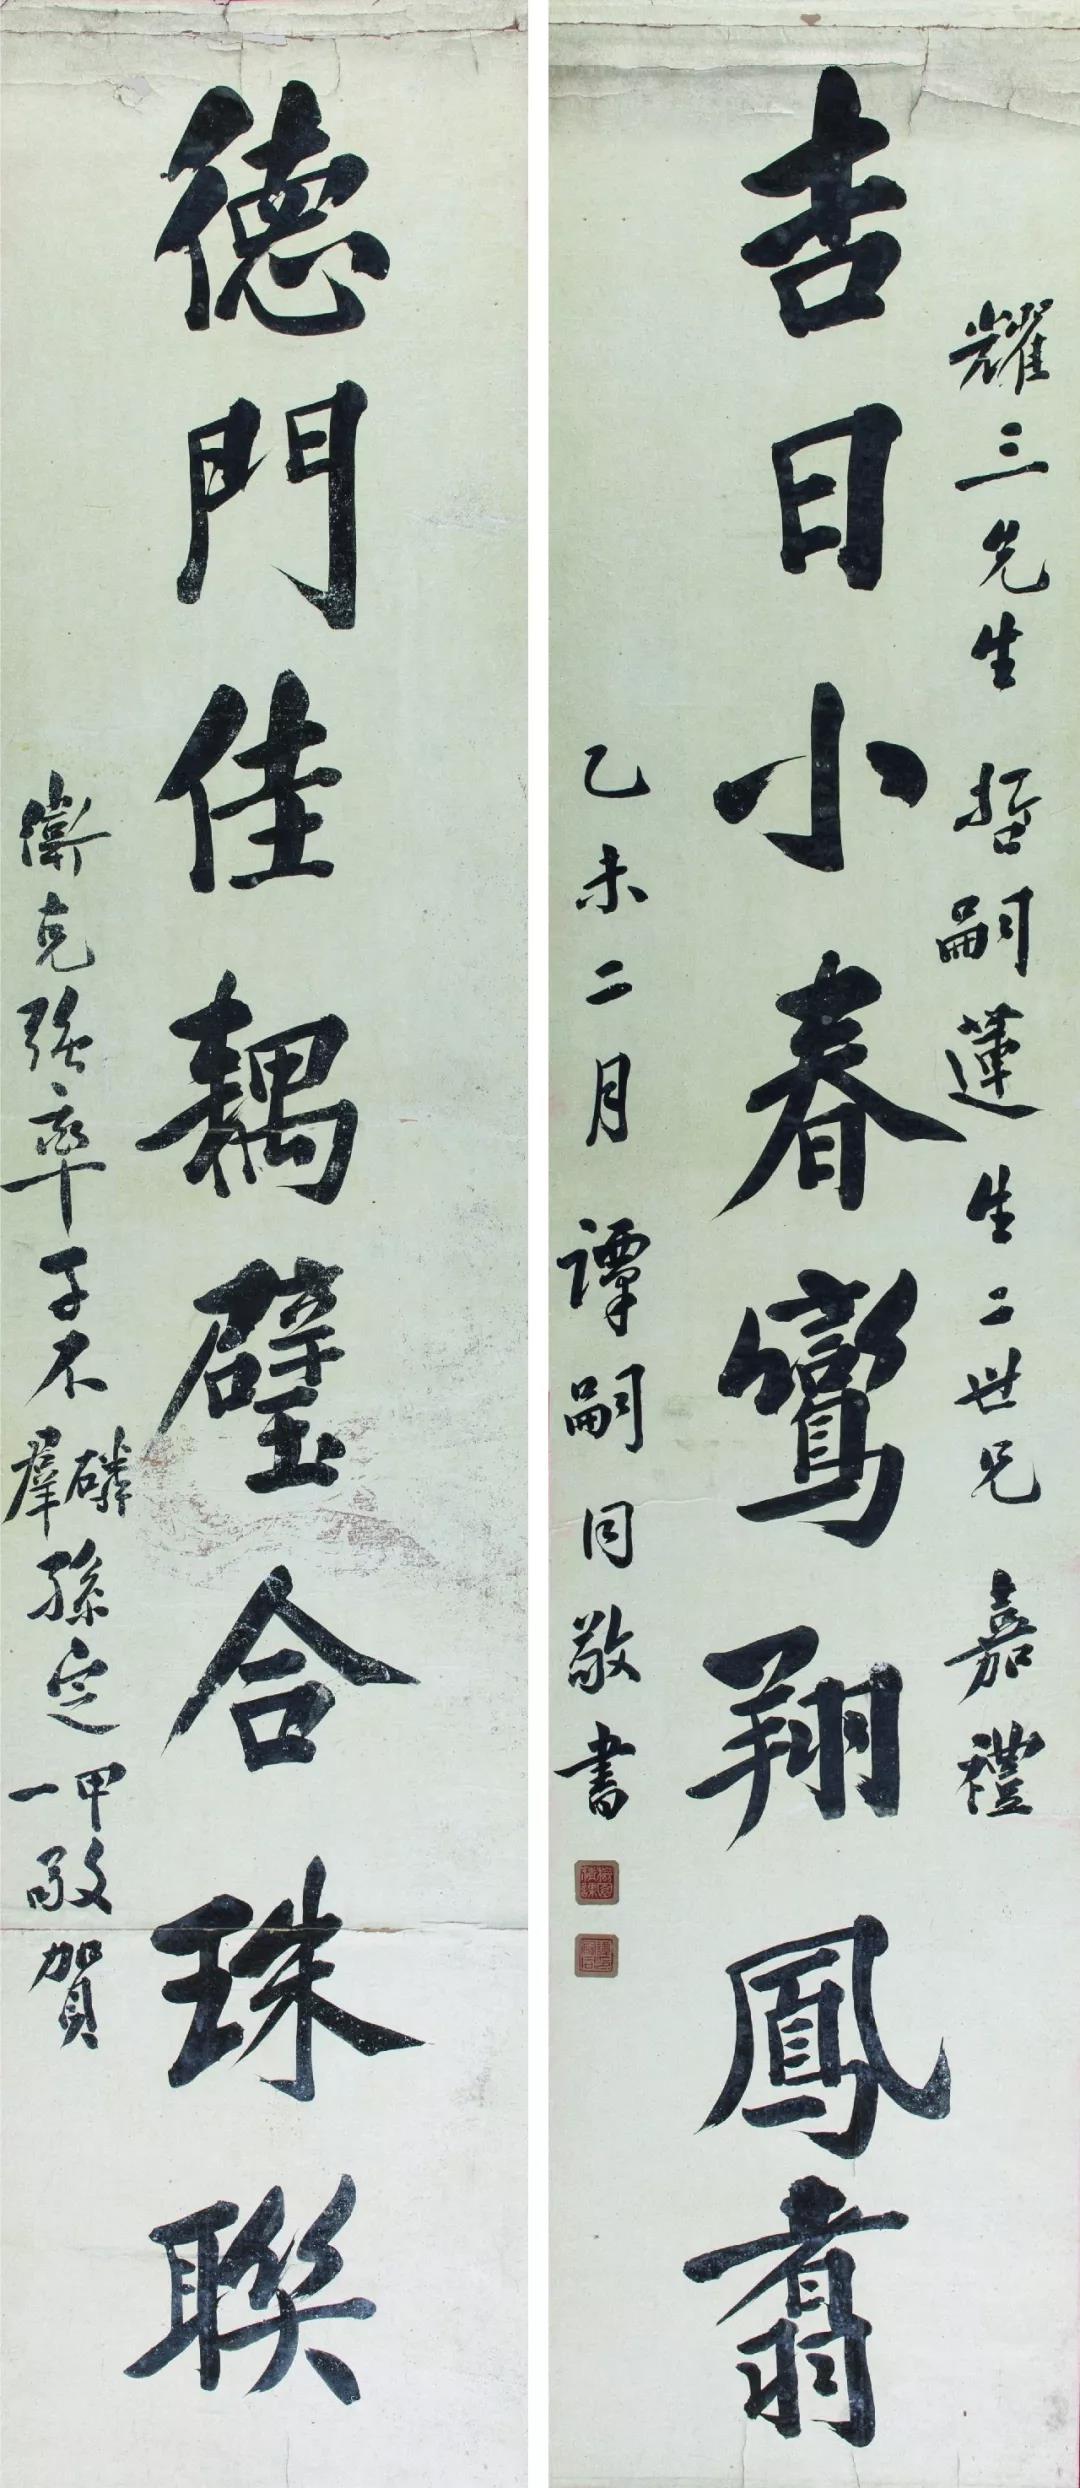 耀三先生哲嗣蓮生二世兄嘉禮
吉日小春鸞翔鳳翥
乙未二月譚嗣同敬書
德門佳耦璧合珠聯
衛克強率子不磷羣孫定一甲敬賀